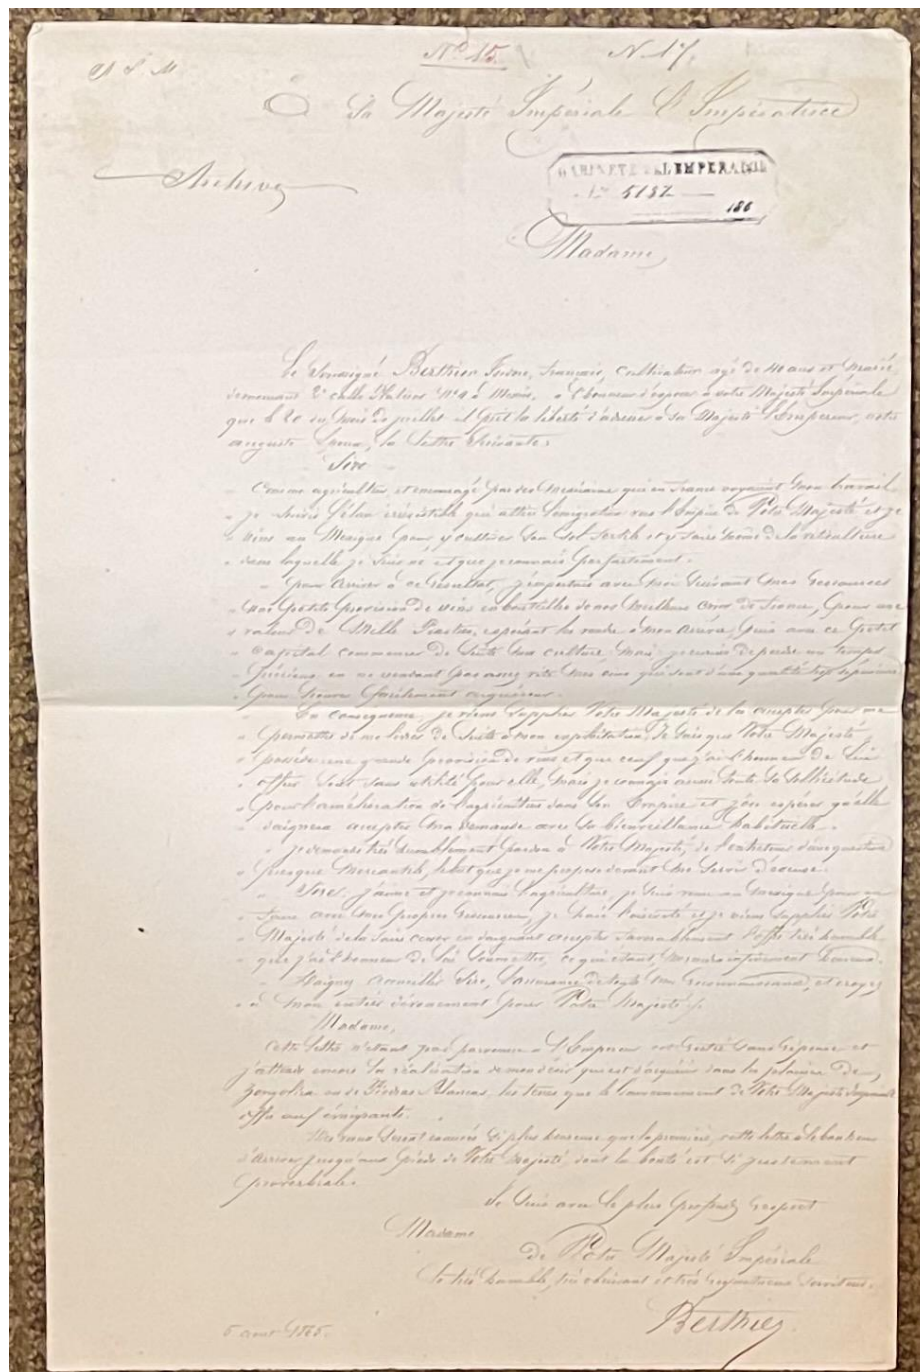 No 15. N. 17.
A S. M
À Sa Majesté Impériale l'Impératrice
Archives
GABINETE DEL EMPERADOR
No 5132
186
Madame,
Le soussigné Berthier, français, cultivateur agé de 40 ans et marié,
demeurant 2e calle No 4 à Mexico, a l'honneur d'exposer à votre Majesté Impériale
que le 20 du mois de juillet il prit la liberté d'adresser à Sa Majesté l'Empereur, votre
auguste Epoux, la lettre suivante:
Sire
" Comme agriculteur, et encouragé par des mexicains qui en France voyaient mon travail
" je suivis l'élan irrésistible qui attire l'émigration vers l'Empire de Votre Majesté et je
" vins au Mexique pour y cultiver son sol fertile et y faire même de la viticulture
" dans laquelle je suis né et que je connais parfaitement.
" Pour arriver à ce résultat, j'importais avec moi suivant mes ressources
" une petite provision de vins en bouteilles de nos meilleurs crus de France, pour une
" valeur de Mille Piastres, espérant les vendre à mon arrivée, puis avec ce petit
" capital commencer de suite ma culture; mais je crains de perdre un temps
" précieux en ne vendant pas assez vite mes vins qui sont d'une qualité trop supérieure
" pour trouver facilement acquéreur.
" En conséquence je viens supplier Votre Majesté de les accepter pour me
" permettre de me livrer de suite à mon exploitation. Je sais que Votre Majesté
" possède une grande provision de vins et que ceux que j'ai l'honneur de lui
" offrir sont sans utilité pour elle, mais je connais aussi toute sa sollicitude
" pour l'amélioration de l'agriculture dans son Empire et j'ose espérer qu'elle
" daignera accepter ma demande avec sa bienveillance habituelle.
" Je demande très humblement pardon à Votre Majesté, de l'entretenir d'une question
" presque mercantile, le but que je me propose devant me servir d'excuse.
" Sire, j'aime et je connais l'agriculture, je suis venu au Mexique pour
" avec mes propres ressources, je hais l'oisiveté et je viens supplier Votre
" Majesté de la faire cesser en daignant accepter favorablement l'offre très humble
" que j'ai l'honneur de lui soumettre, ce qui étant, me rendra infiniment heureux.
" Daignez accueillir Sire, l'assurance de toute ma reconnaissance, et croyez
" à mon entier dévouement pour Votre Majesté.
Madame,
Cette lettre n'étant pas parvenue à l'Empereur est restée sans réponse et
j'attends encore la réalisation de mon désir qui est d'acquérir dans les de
Zongolica ou de Piedras Blancas, les terres que le Gouvernement de Votre Majesté Impériale
offre aux émigrants.
Mes vœux seront exaucés si plus heureuse que la première, cette lettre a le bonheur
d'arriver jusqu'aux pieds de Votre Majesté, dont la bonté est si justement
proverbiale.
Je suis avec le plus profond respect
Madame
de Votre Majesté Impériale
le très humble, très obéissant et très respectueux serviteur.
Berthier
5 aout 1865.